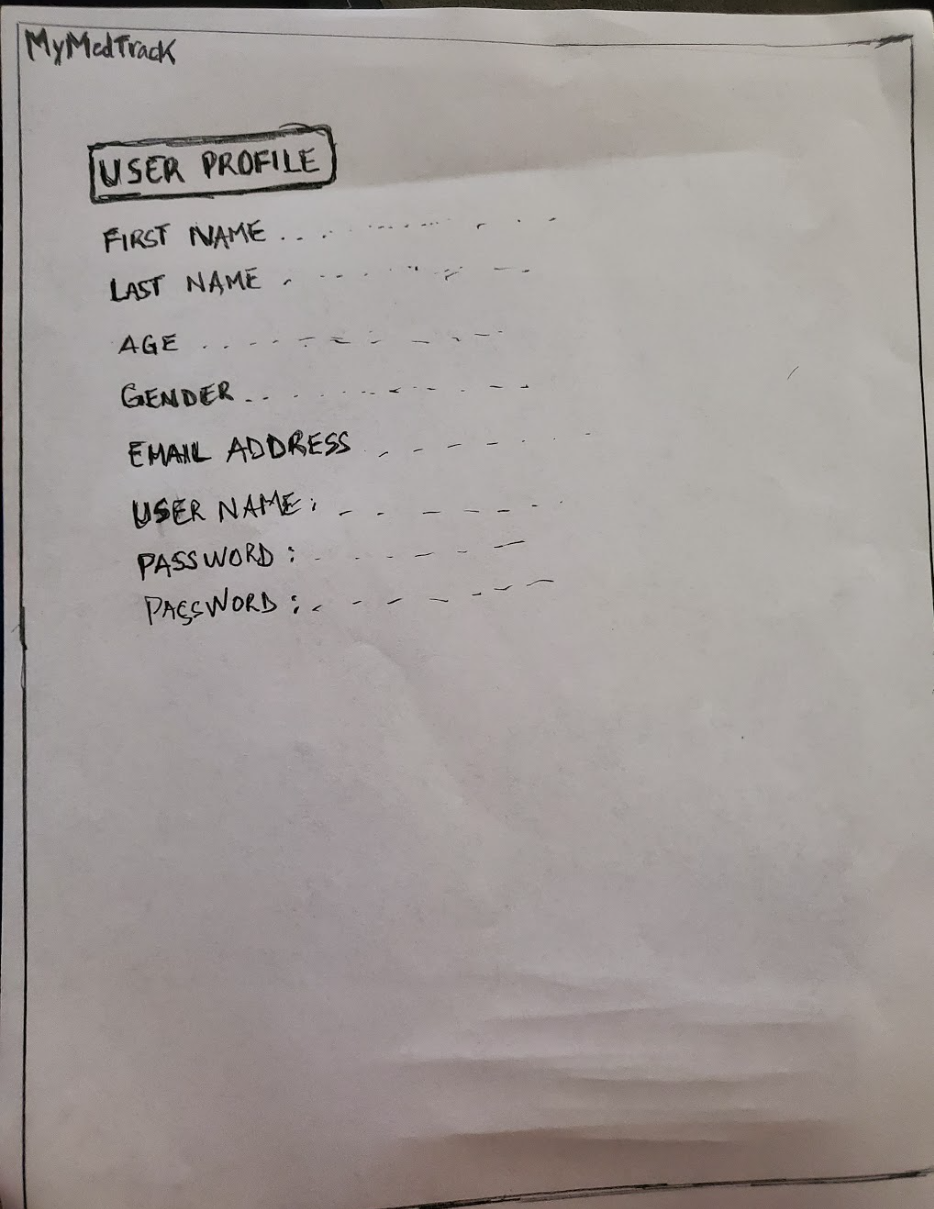 MyMedTrack
USER PROFILE
FIRST NAME
LAST NAME
AGE
GENDER
EMAIL ADDRESS
USER NAME:
PASSWORD:
PASSWORD: